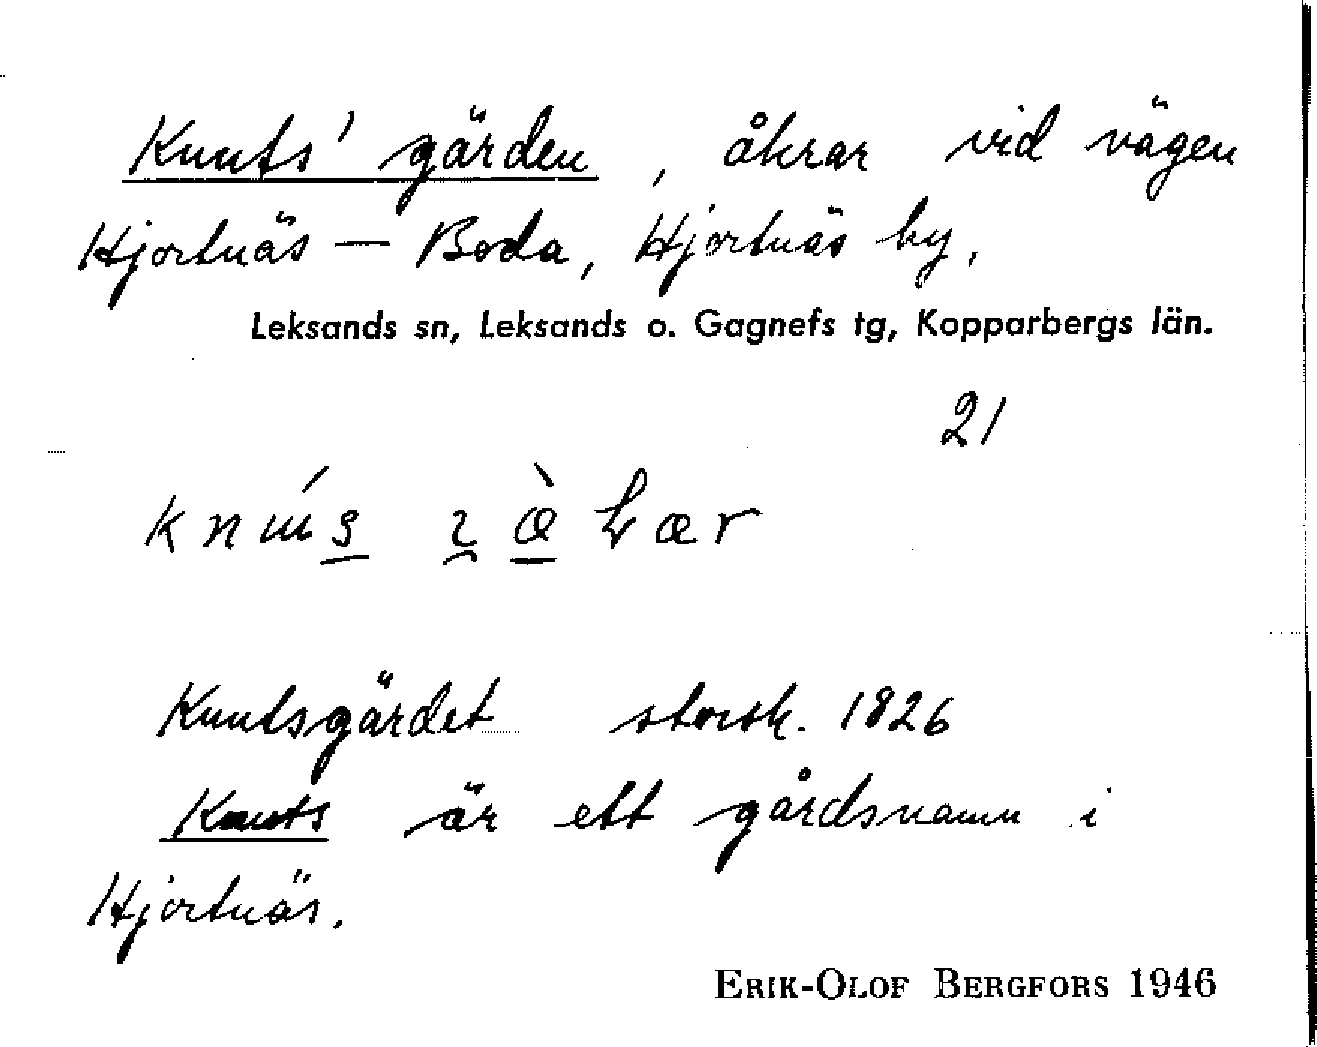 Knuts' gärden, åkrar vid vägen
Hjortnäs — Boda, Hjortnäs by,
Leksands sn, Leksands o. Gagnefs tg, Kopparbergs län.
21
Knutsgärdet storsk. 1826
Knuts är ett gårdsnamn i
Hjortnäs.
ERIK-OLOF BERGFORS 1946